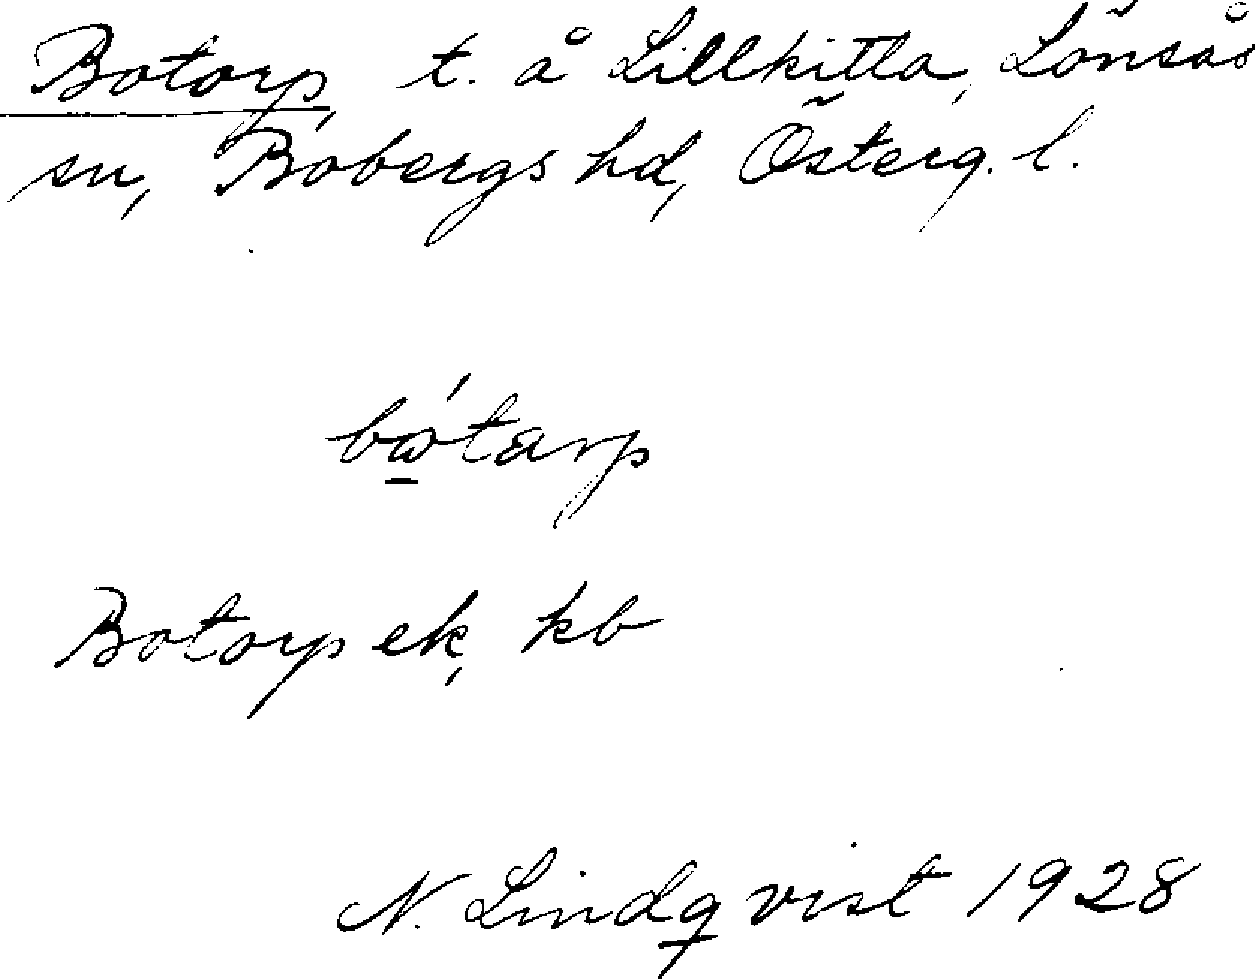 Botorp, t. å Lillkitta, Lönsås
sn, Bobergs hd, Österg. l.
bɷ́tarp
Botorp ek, kb
N. Lindqvist 1928